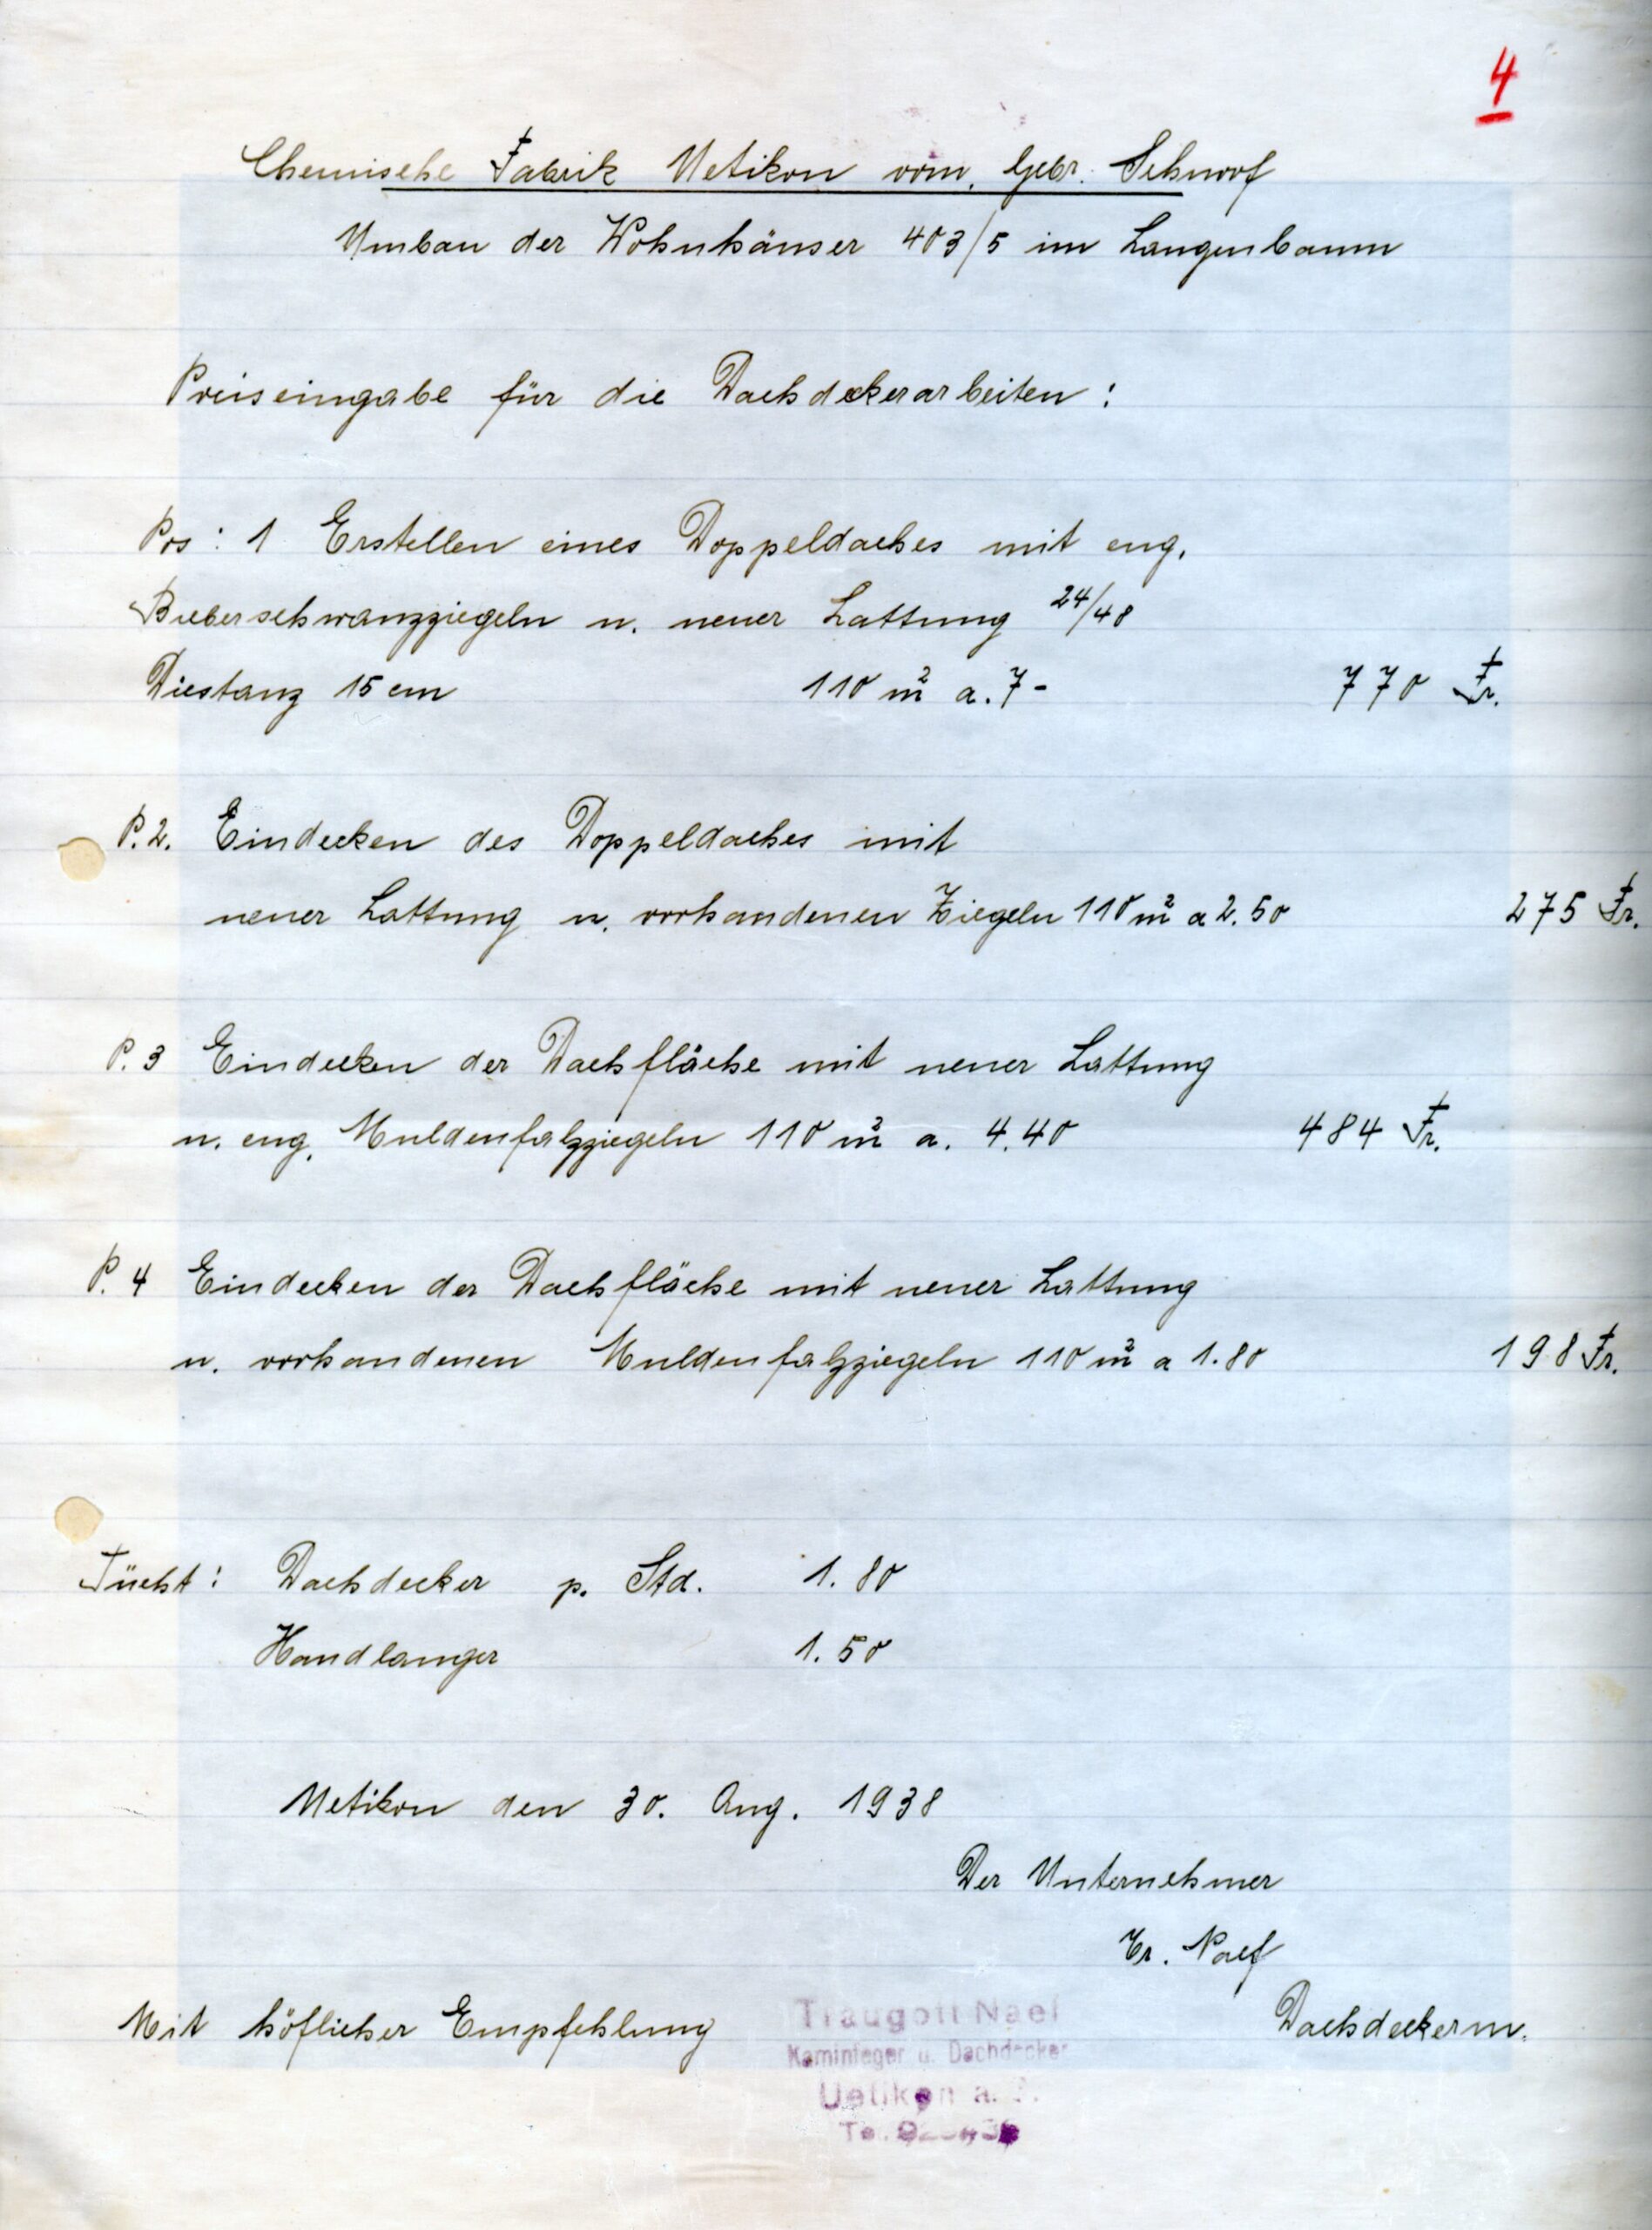 4
Chemische Fabrik Uetikon vorm. Gebr. Schnorf
Umbau der Wohnhäuser 403/5 im Langenbaum
Preiseingabe für die Dachdeckerarbeiten :
Pos : 1 Erstellen eines Doppeldaches mit eng.
Bieberschwanzziegeln u. neuer Lattung 24/48
Diestanz 15 cm 110 m² a. 7- 770 Fr.
P. 2. Eindecken des Doppeldaches mit
neuer Lattung u. vorhandenen Ziegeln 110 m² a 2.50 275 Fr.
P. 3 Eindecken der Dachfläche mit neuer Lattung
u. eng. Muldenfalzziegeln 110 m² a. 4.40 484 Fr.
P. 4 Eindecken der Dachfläche mit neuer Lattung
u. vorhandenen Muldenfalzziegeln 110 m² a 1.80 198 Fr.
Dachdecker p. Std. 1.80
Handlanger 1.50
Uetikon den 30. Aug. 1938
Der Unternehmer
Tr. Naef
Mit höflicher Empfehlung Dachdeckerm.
Traugott Naef
Kaminfeger u. Dachdecker
Uetikon a.